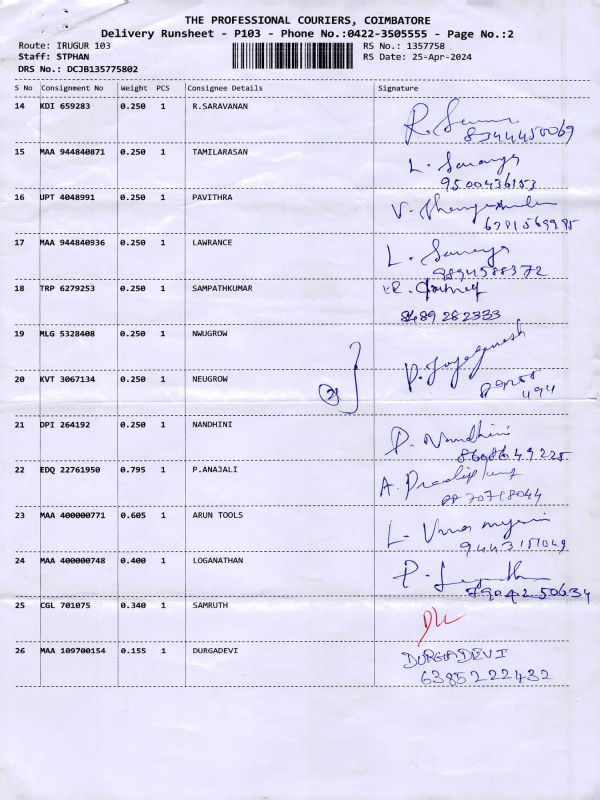 THE PROFESSIONAL COURIERS, COIMBATORE
Delivery Runsheet - P103 - Phone No.:0422-3505555 - Page No.:2
Route: IRUGUR 103 RS No.: 1357758
Staff: STPHAN RS Date: 25-Apr-2024
DRS No.: DCJB135775802
S No Consignment No Weight PCS Consignee Details Signature
14 KDI 659283 0.250 1 R.SARAVANAN
8344450069
15 MAA 944840871 0.250 1 TAMILARASAN
9500436153
16 UPT 4048991 0.250 1 PAVITHRA
6381569985
17 MAA 944840936 0.250 1 LAWRANCE
9894588372
18 TRP 6279253 0.250 1 SAMPATHKUMAR
8489282333
19 MLG 5328408 0.250 1 NWUGROW
20 KVT 3067134 0.250 1 NEUGROW
2
21 DPI 264192 0.250 1 NANDHINI P. Nandhini
22 EDQ 22761950 0.795 1 P.ANAJALI
23 MAA 400000771 0.605 1 ARUN TOOLS
9443151049
24 MAA 400000748 0.400 1 LOGANATHAN
25 CGL 701075 0.340 1 SAMRUTH
26 MAA 109700154 0.155 1 DURGADEVI DURGADEVI
6385222432